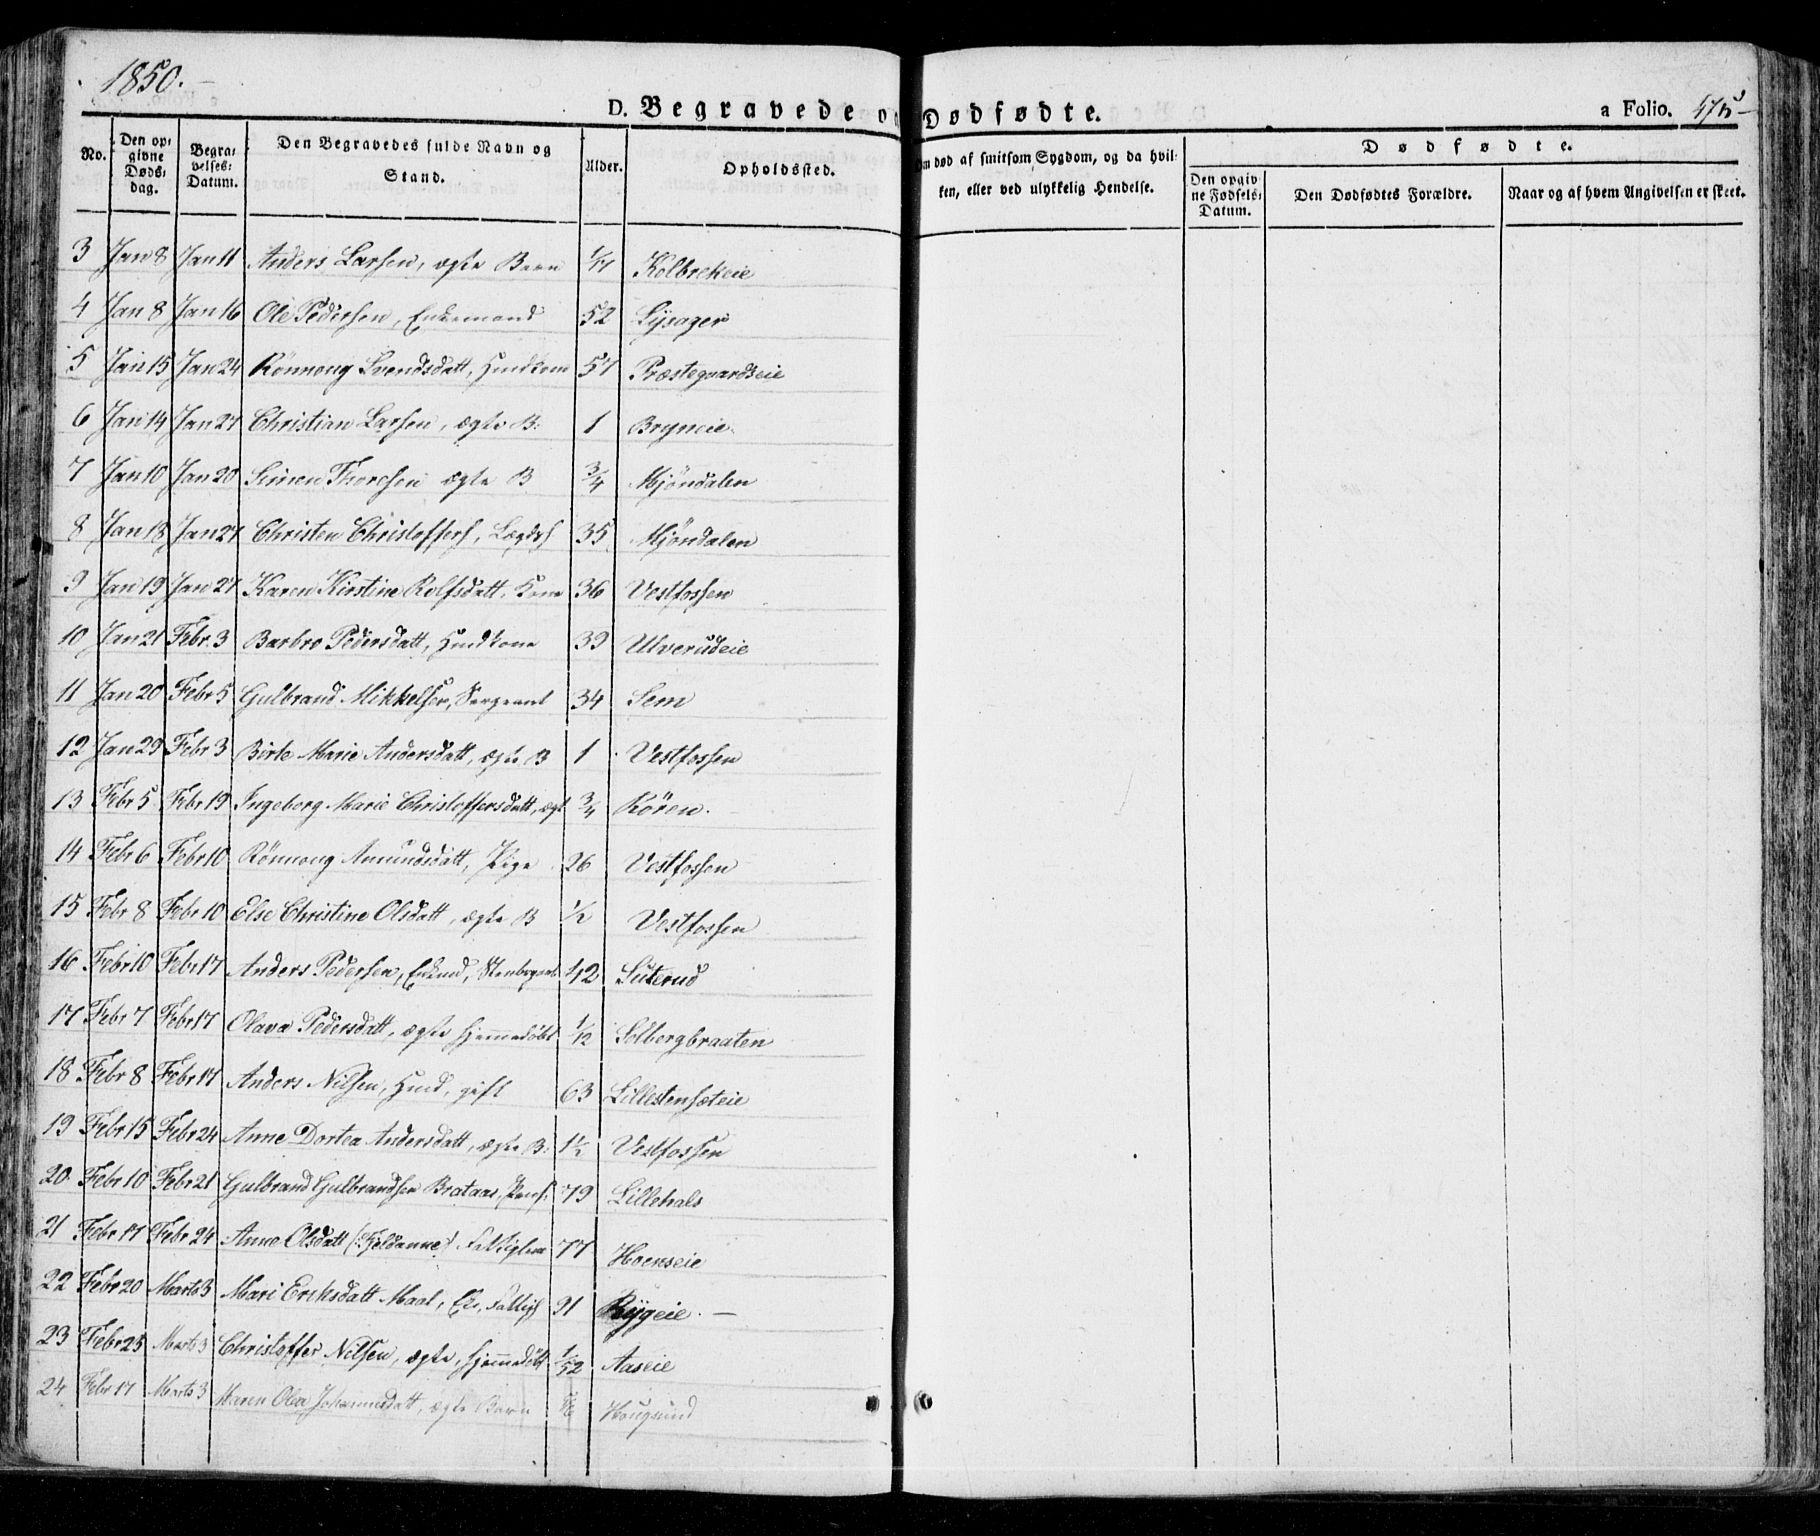 1850.
D. Begravede og Dødfødte.
a Folio. 475
No. Den opgivne Dødsdag. Begravelses-Datum. Den Begravedes fulde Navn og Stand. Alder. Opholdssted. Om død af smitsom Sygdom, og da hvilken, eller ved ulykkelig Hendelse.
Dødfødte.
Den opgivne Fødsels-Datum. Den Dødfødtes Forældre. Naar og af hvem Angivelsen er skeet.
3 Jan 8 Jan 11 Anders Larsen, ægte Barn Kolbrekeie
4 Jan 8 Jan 16 Ole Pedersen, Enkemand 52 Lysager
5 Jan 15 Jan 24 Rönnong Svendsdatt, Huuskone 57 Præstegaardseie
6 Jan 14 Jan 27 Christian Larsen, ægte B. 1 Bryneie
7 Jan 10 Jan 20 Simen Thoresen ægte B 3/4 Mjöndalen
8 Jan 18 Jan 27 Christen Christoffers, Lægds 35 Mjöndalen
9 Jan 19 Jan 27 Karen Kirstine Rolfsdatt, Kone 36 Vestfossen
10 Jan 21 Febr. 3 Barbro Pedersdatt, Huuskone 39 Ulverudeie
11 Jan 20 Febr 5 Gulbrand Mikkelsen, Sergeant 34 Sem
12 Jan 29 Febr 3 Börte Marie Andersdatt, ægte B 1 Vestfossen
13 Febr 5 Febr 19 Ingeborg Marie Christoffersdatt, ægt 3/4 Rören.
14 Febr 6 Febr 10 Rönnong Amundsdatt, Pige 26 Vestfossen
15 Febr 8 Febr 10 Else Christine Olsdatt, ægte B 1/2 Vestfossen
16 Febr 10 Febr 17 Anders Pedersen, 42 Suterud
17 Febr 7 Febr 17 Olava Pedersdatt, ægte hjemedöbt 1/12 Solbergbraaten
18 Febr 8 Febr 17 Anders Nilsen, Huusd, gift 63 Lillestensæteie
19 Febr 15 Febr 24 Anne Dortea Andersdatt, ægte B. 1 1/2 Vestfossen
20. Febr 10 Febr 21 Gulbrand Gulbrandsen Brataas, Pens. 79 Lillehals
21 Febr 17 Febr 24 Anne Olsdatt (:Fjeldanne:) 77 Hoenseie
22 Febr 20 Marts 3 Mari Eriksdatt Maal, Eke, Fattigl 91 Rygeie. —
23 Febr 25 Marts 3 Christoffer Nilsen, ægte, hjemedöbt 1/52 Aaseie
24 Febr 17 Marts 3 Maren Olea Johannesdatt, ægte Barn Hougsund